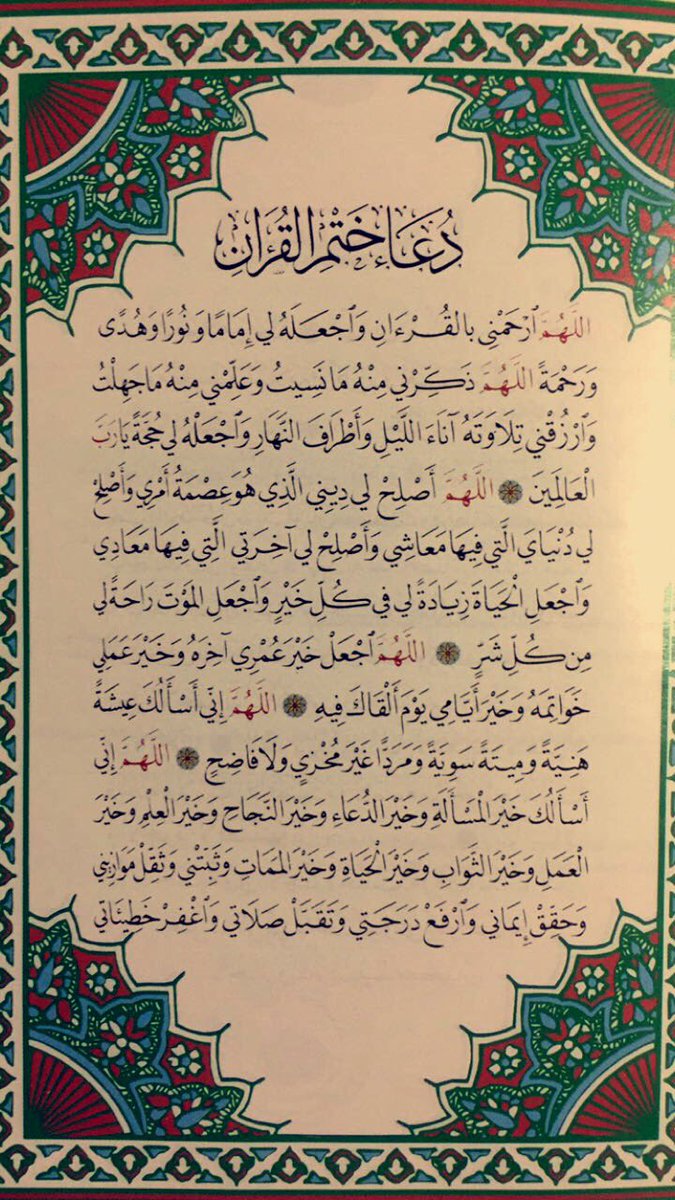 دُعَاءُ خَتْمِ الْقُرْآنِ
اللَّهُمَّ ٱرْحَمْنِي بالقُرْءَانِ وَٱجْعَلهُ لي إِمَامًا وَنُورًا وَهُدًى
وَرَحْمَةً اللَّهُمَّ ذَكِّرْني مِنْهُ مَا نَسِيتُ وَعَلِّمْني مِنْهُ مَا جَهِلْتُ
وَٱرْزُقْني تِلاَوَتَهُ آنَاءَ اللَّيْلِ وَأَطْرَافَ النَّهَارِ وَٱجْعَلْهُ لي حُجَّةً يَا رَبَّ
العَالمِينَ ۞ اللَّهُمَّ أَصْلِحْ لي دِيني الَّذِي هُوَ عِصْمَةُ أَمْرِي وَأَصْلِحْ
لي دُنْيَايَ الَّتي فِيهَا مَعَاشِي وَأَصْلِحْ لي آخِرَتي الَّتي فِيهَا مَعَادِي
وَٱجْعَلِ الْحَيَاةَ زِيَادَةً لي في كُلِّ خَيْرٍ وَٱجْعَلِ المَوْتَ رَاحَةً لي
مِن كُلِّ شَرٍّ ۞ اللَّهُمَّ ٱجْعَلْ خَيْرَ عُمْرِي آخِرَهُ وَخَيْرَ عَمَلِي
خَوَاتِمَهُ وَخَيْرَ أَيَّامِي يَوْمَ أَلْقَاكَ فِيهِ ۞ اللَّهُمَّ إِنِّي أَسْأَلُكَ عِيشَةً
هَنِيَّةً وَمِيتَةً سَوِيَّةً وَمَرَدًّا غَيْرَ مُخْزِي وَلَا فَاضِحٍ ۞ اللَّهُمَّ إِنِّي
أَسْأَلُكَ خَيْرَ المَسْأَلَةِ وَخَيْرَ الدُّعَاءِ وَخَيْرَ النَّجَاحِ وَخَيْرَ الْعِلْمِ وَخَيْرَ
الْعَمَلِ وَخَيْرَ الثَّوَابِ وَخَيْرَ الْحَيَاةِ وَخَيْرَ المَمَاتِ وَثَبِّتْني وَثَقِّلْ مَوَازِيني
وَحَقِّقْ إِيمَاني وَٱرْفَعْ دَرَجَتي وَتَقَبَّلْ صَلَاتي وَٱغْفِرْ خَطِيئَاتي